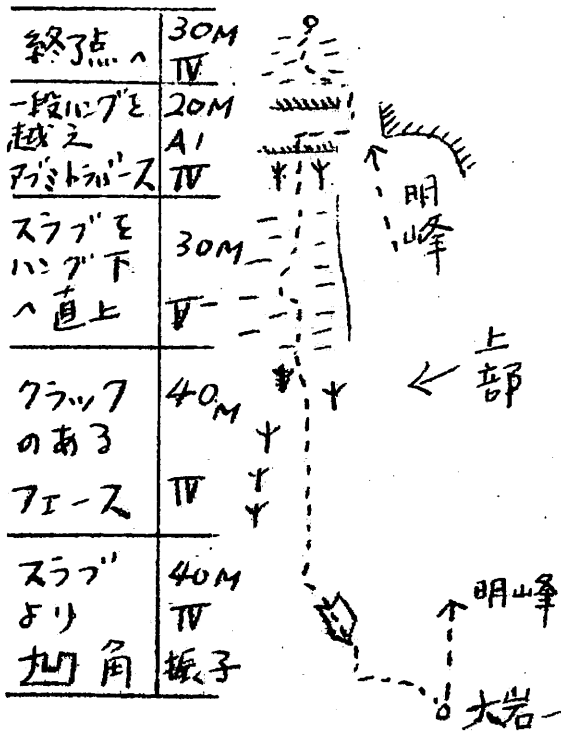 終了点へ
30M
IV
一段ハングを
越え
アブミトラバース
20M
A1
IV
スラブを
ハング下
へ直上
30M
V-
クラック
のある
フェース
40M
IV
スラブ
より
凹角
40M
IV
振子
明峰
上部
明峰
大岩